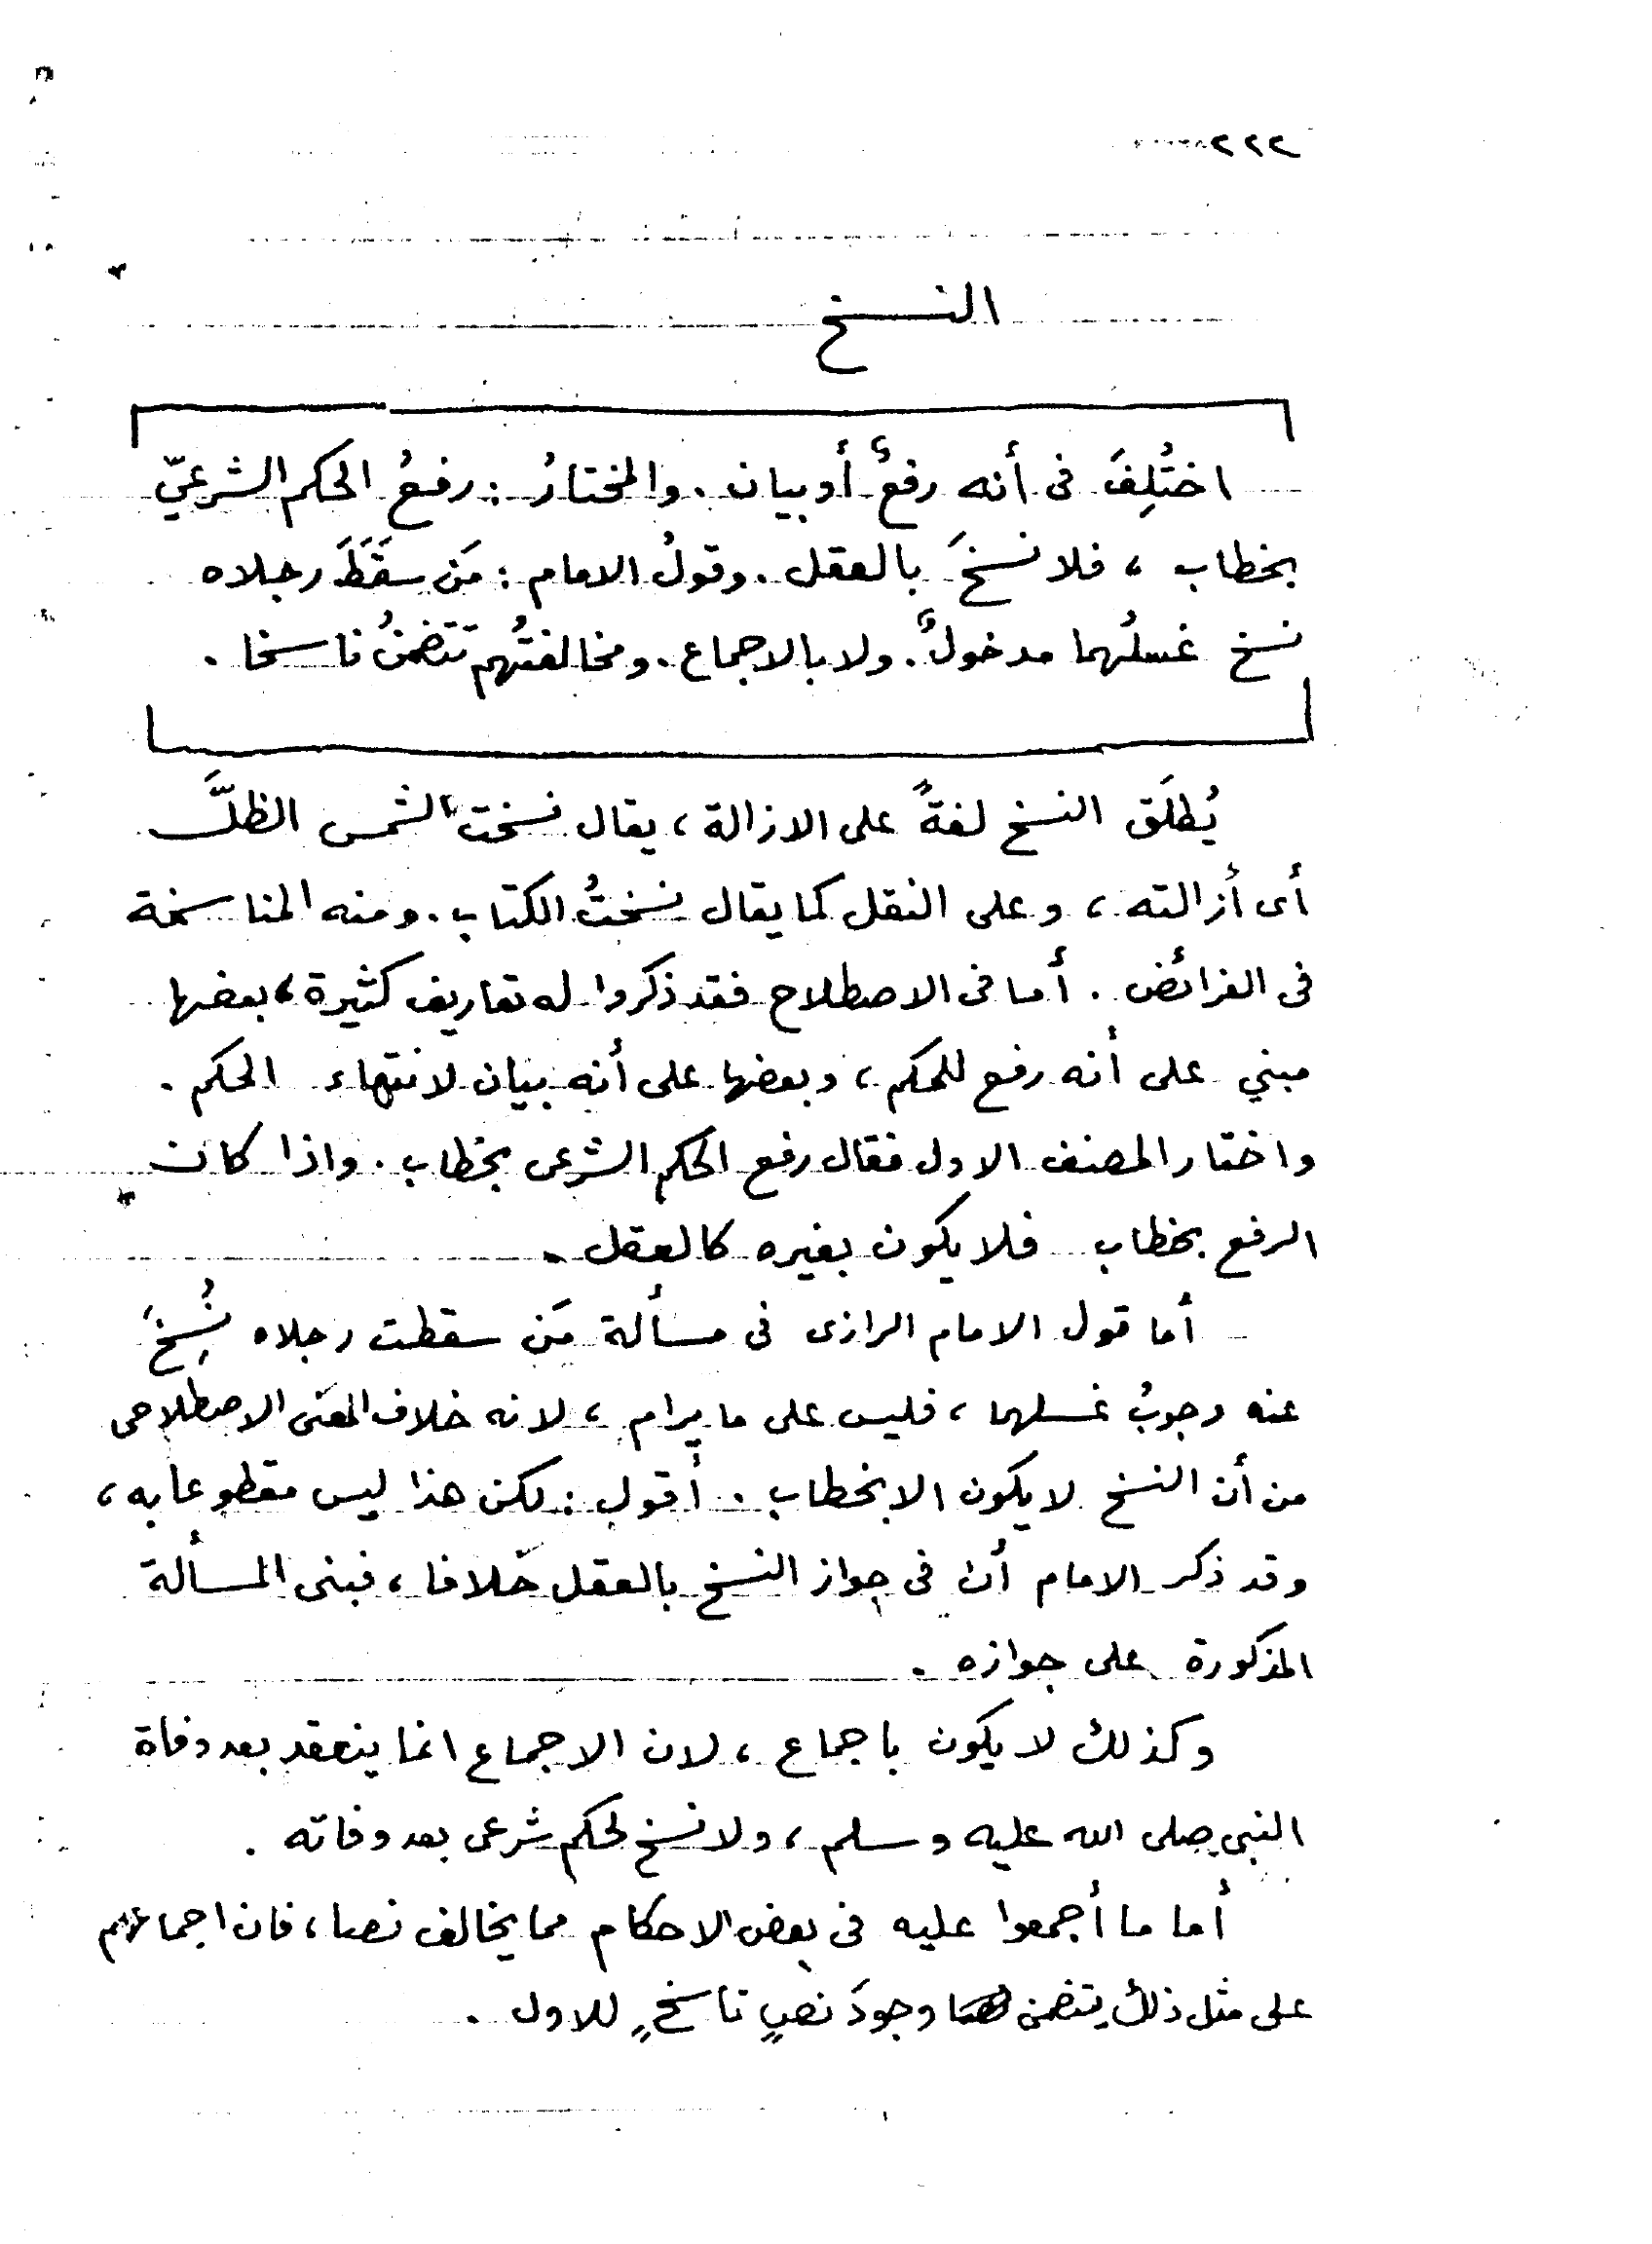 ٢٢٢
النسخ
اختُلِفَ فى أنه رفعٌ أو بيان . والمختارُ : رفعُ الحكم الشرعيّ
بخطاب ، فلا نسخَ بالعقل . وقولُ الامام : مَن سقَطَ رجلاه
نسخ غسلُهما مدخولٌ . ولا بالاجماع . ومخالفتُهم تتضمنُ ناسخا .
يُطلَق النسخ لغةً على الازالة ، يقال نسخت الشمس الظلَّ
أى أزالته ، وعلى النقل كما يقال نسختُ الكتاب . ومنه المناسخة
فى الفرائض . أما فى الاصطلاح فقد ذكروا له تعاريف كثيرة ، بعضها
مبني على أنه رفع للحكم ، وبعضها على أنه بيان لانتهاء الحكم .
واختار المصنف الاول فقال رفع الحكم الشرعى بخطاب . واذا كان
الرفع بخطاب فلا يكون بغيره كالعقل .
أما قول الامام الرازى فى مسألة مَن سقطت رجلاه نُسِخَ
عنه وجوبُ غسلهما ، فليس على ما يرام ، لانه خلاف المعنى الاصطلاحى
من أن النسخ لا يكون الا بخطاب . أقول : لكن هذا ليس مقطوعا به ،
وقد ذكر الامام أن فى جواز النسخ بالعقل خلافا ، فبنى المسألة
المذكورة على جوازه .
وكذلك لا يكون باجماع ، لان الاجماع انما ينعقد بعد وفاة
النبى صلى الله عليه وسلم ، ولا نسخ لحكم شرعى بعد وفاته .
أما ما أجمعوا عليه فى بعض الاحكام مما يخالف نصا ، فان اجماعهم
على مثل ذلك يتضمن وجودَ نصٍ ناسخٍ للاول .